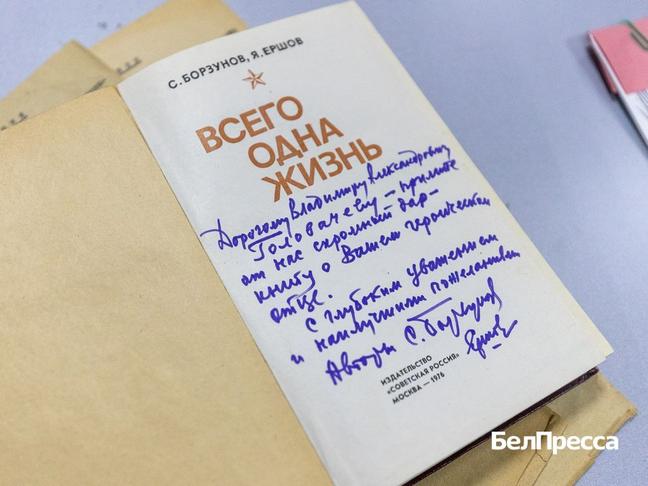 С. БОРЗУНОВ, Я. ЕРШОВ
ВСЕГО
ОДНА
ЖИЗНЬ
Дорогому Владимиру Александровичу
Головачеву – примите
от нас скромный дар –
книгу о Вашем героическом
отце.
С глубоким уважением
и наилучшими пожеланиями
Авторы С. Борзунов
Ершов
ИЗДАТЕЛЬСТВО
«СОВЕТСКАЯ РОССИЯ»
МОСКВА — 1976
БелПресса